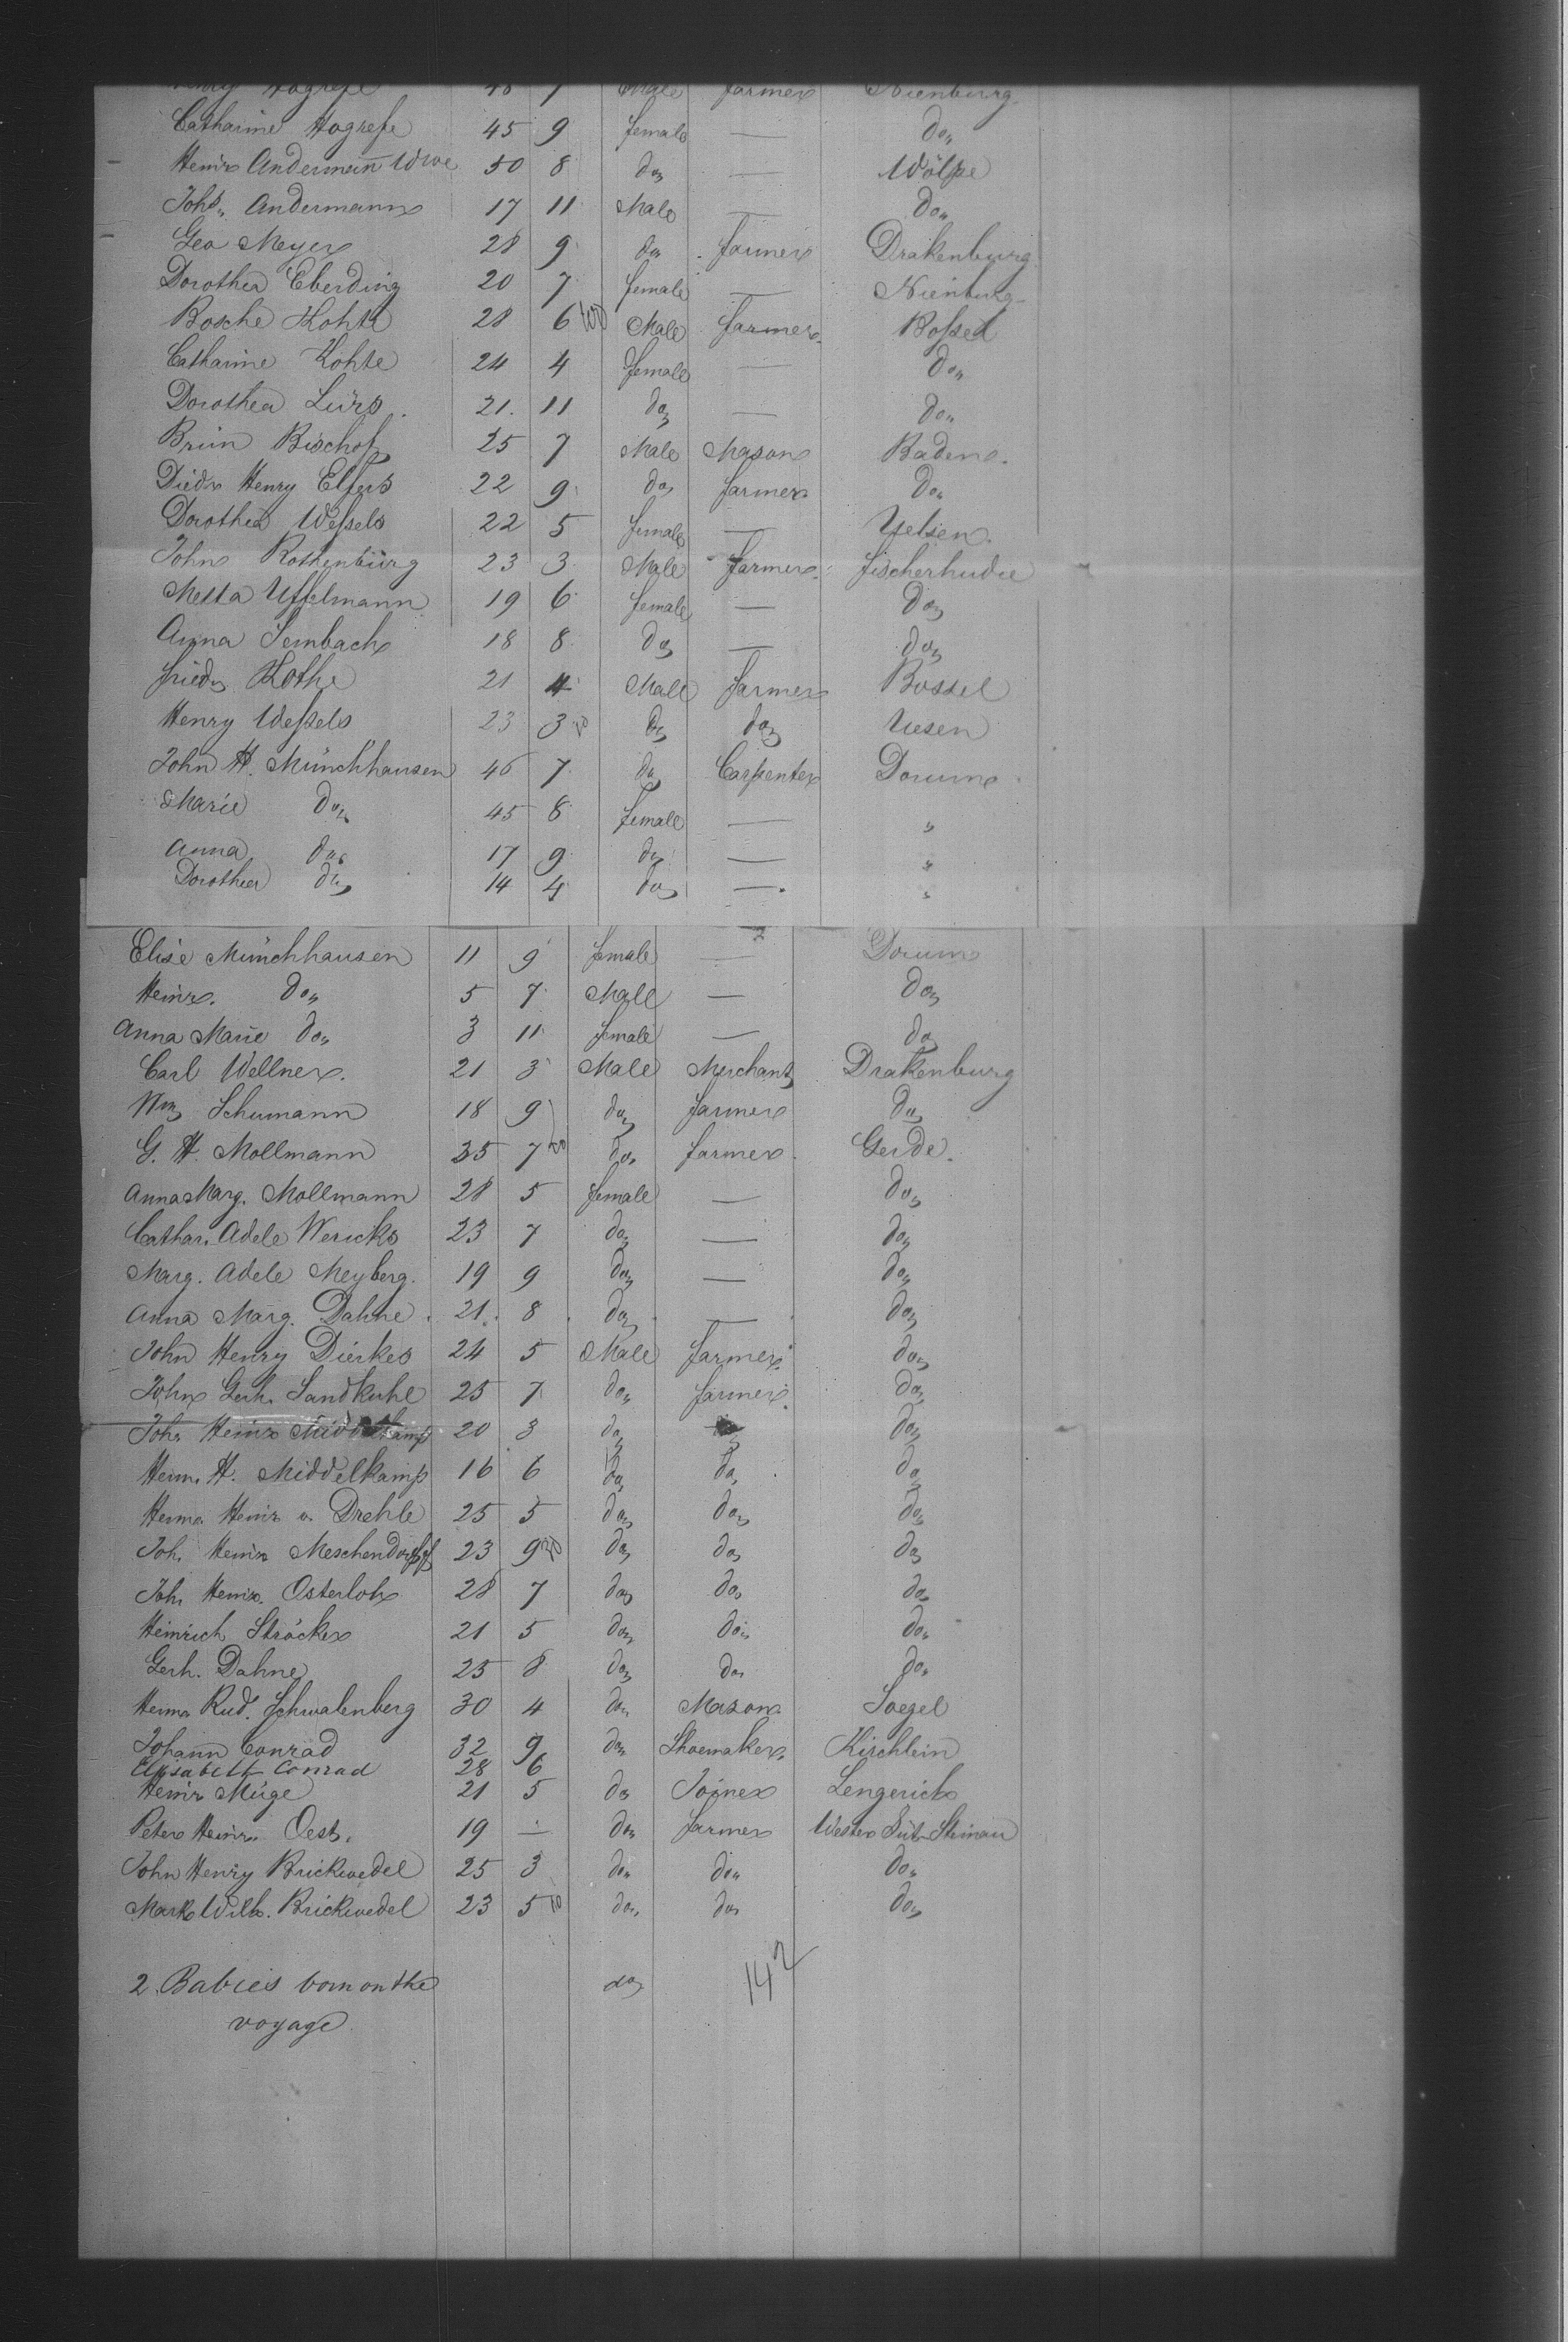 Henry Hogrefe 48 7 Male farmer Nienburg
Catharine Hogrefe 45 9 female — do
Heinr Andermann Wwe 50 8 do — Wölpe
Joh. Andermann 17 11 Male — do
Geo Meyer 28 9 do farmer Drakenburg
Dorothea Eberding 20 7 female — Nienburg
Bosche Kohte 28 6 Male farmer Bossel
Catharine Kohte 24 4 female — do
Dorothea Lürs 21 11 do — do
Brün Bischof 25 7 Male Mason Baden
Diedr Henry Elfers 22 9 do farmer do
Dorothea Wessels 22 5 female — Uelsen
John Rothenbürg 23 3 Male farmer fischerhudie
Metta Uffelmann 19 6 female — do
Anna Sembach 18 8 do — do
friedr Kothe 21 4 Male farmer Bossel
Henry Wessels 23 3 do do Uesen
John H. Münchhausen 46 7 do Carpenter Dorum
Marie do 45 8 female — "
Anna do 17 9 do — "
Dorothea do 14 4 do — "
Elise Münchhausen 11 9 female — Dorum
Heinr. do 5 7 Male — do
Anna Marie do 3 11 female — do
Carl Wellner 21 3 Male Merchant Drakenburg
Wm Schumann 18 9 do farmer do
G. H. Mollmann 35 7 do farmer Gerde
Anna Marg. Mollmann 28 5 female — do
Cathar. Adele Wericks 23 7 do — do
Marg. Adele Meyberg 19 9 do — do
Anna Marg. Dahne 21 8 do — do
John Henry Dierkes 24 5 Male farmer do
John Gerh. Sandkuhl 25 7 do farmer do
Joh. Heinr Middelkamp 20 3 do do do
Herm. H. Middelkamp 16 6 do do do
Herm. Heinr v. Drehle 25 5 do do do
Joh. Heinr Meschendorf 23 9 do do do
Joh. Heinr. Osterloh 28 7 do do do
Heinrich Ströcker 21 5 do do do
Gerh. Dahne 25 8 do do do
Herm. Rud. Schwalenberg 30 4 do Mason Soegel
Johann Conrad 32 9 do Shoemaker Kirchlein
Elisabeth Conrad 28 6
Heinr Müge 21 5 do Joiner Lengerich
Peter Heinr. Oest. 19 — do farmer Wester
John Henry Brickwedel 25 3 do do do
Mark Wilh. Brickwedel 23 5 do do do
2 Babies born on the do 142
voyage